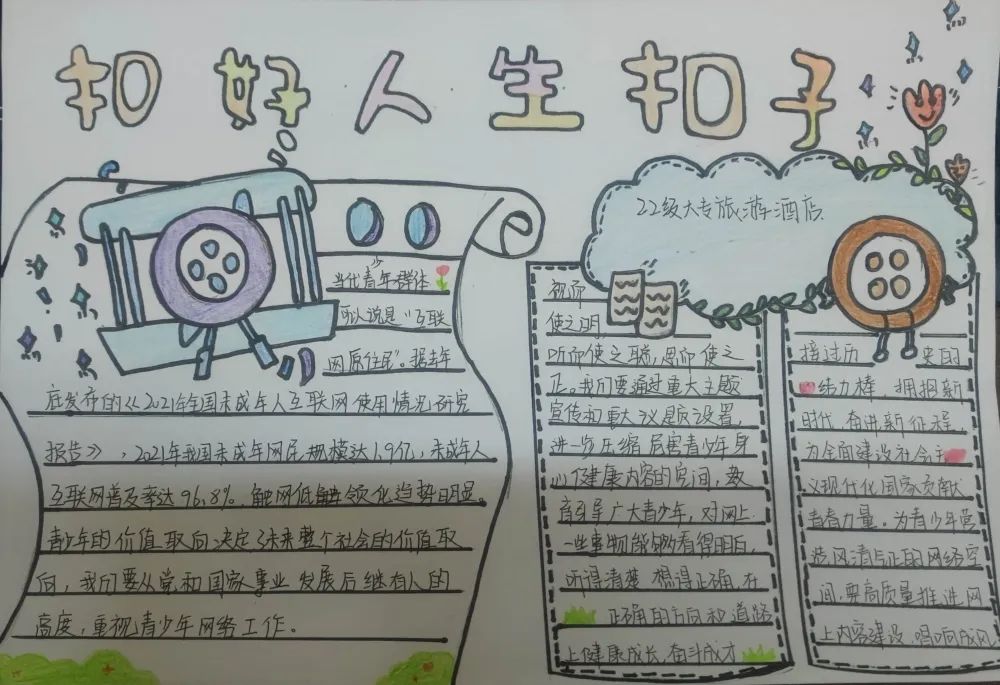 扣好人生扣子
22级大专旅游酒店
当代青少年群体
可以说是“互联
网原住民”。据去年
底发布的《2021年全国未成年人互联网使用情况研究
报告》，2021年我国未成年网民规模达1.9亿，未成年人
互联网普及率达96.8%。触网低龄化趋势明显。
青少年的价值取向决定了未来整个社会的价值取
向，我们要从党和国家事业发展后继有人的
高度，重视青少年网络工作。
视而
使之明，
听而使之聪，思而使之
正。我们要通过重大主题
宣传和重大议题设置，
进一步压缩危害青少年身
心健康内容的空间，教
育引导广大青少年，对网上
一些事物能够看得明白，
听得清楚 想得正确，在
正确的方向和道路
上健康成长，奋斗成才
接过历 来的
结力棒，拥抱新
时代 奋进新征程，
为全面建设社会主
义现代化国家贡献
青春力量。为青少年营
造风清气正的网络空
间，要高质量推进网
上内容建设，唱响成风